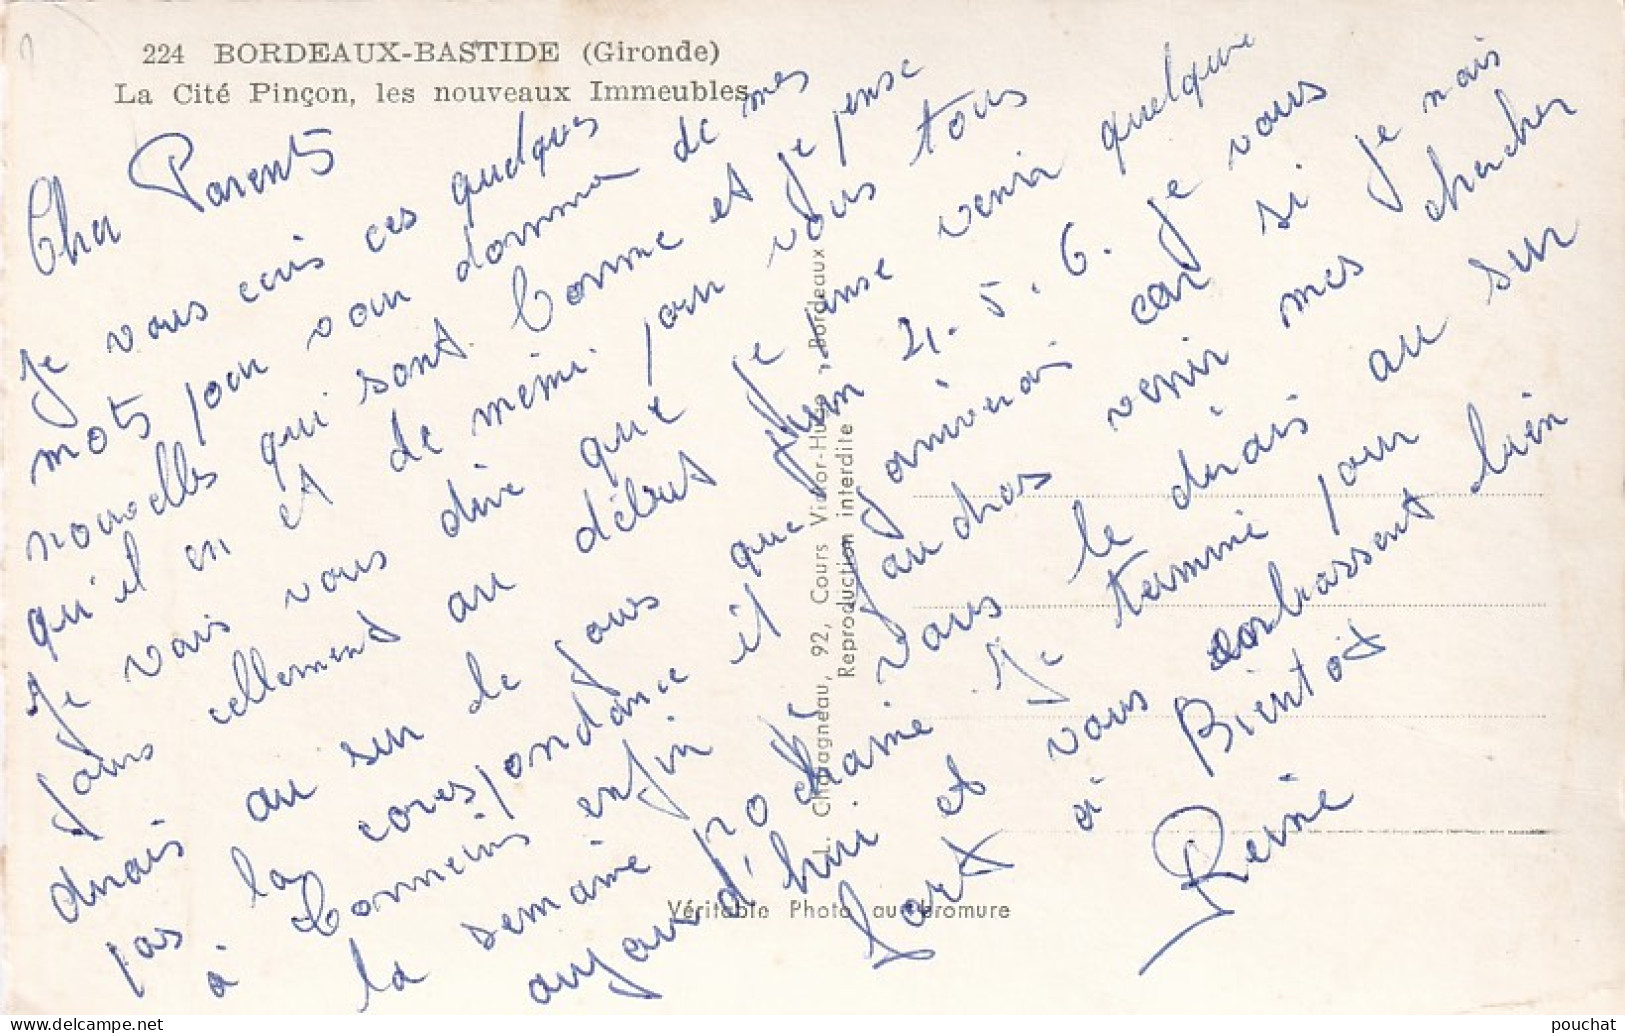 224 BORDEAUX-BASTIDE (Gironde)
La Cité Pinçon, les nouveaux Immeubles
Cher Parents
Je vous ecris ces quelques
mots pour vour donner de mes
nouvelles qui sont bonne et je pense
qu'il en et de même pour vous tous
Je vais vous dire que je pense venir quelque
jours cellement au début Juin 4. 5. 6. Je vous
dirais au sur de jous que j'arriverais car si je
pas la corespondance il faudras venir mes chercher
à Bonneins enfin vous le dirais au sur
la semaine prochaine. Je termine pour
aujourd'hui et vous embrassent bien
fort à Bientot
Reine
L. Chatagneau, 92, Cours Victor-Hugo, Bordeaux
Reproduction interdite
Véritable Photo au bromure
pouchat